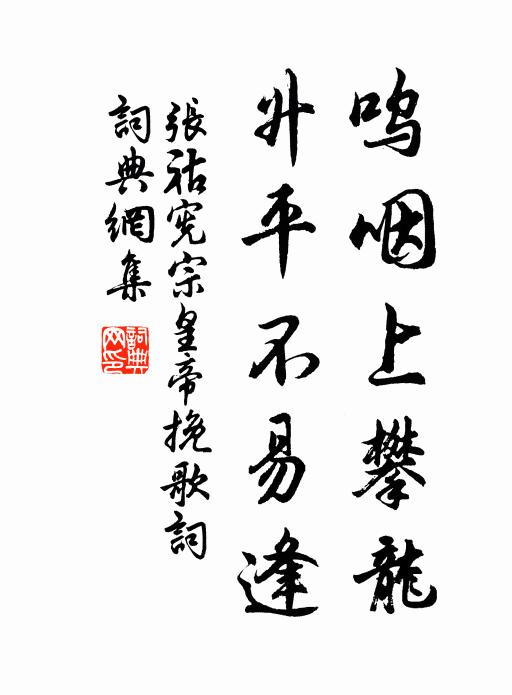 呜咽上攀龍
升平不易逢
張祜宪宗皇帝挽歌詞
詞典網集
詞典网印